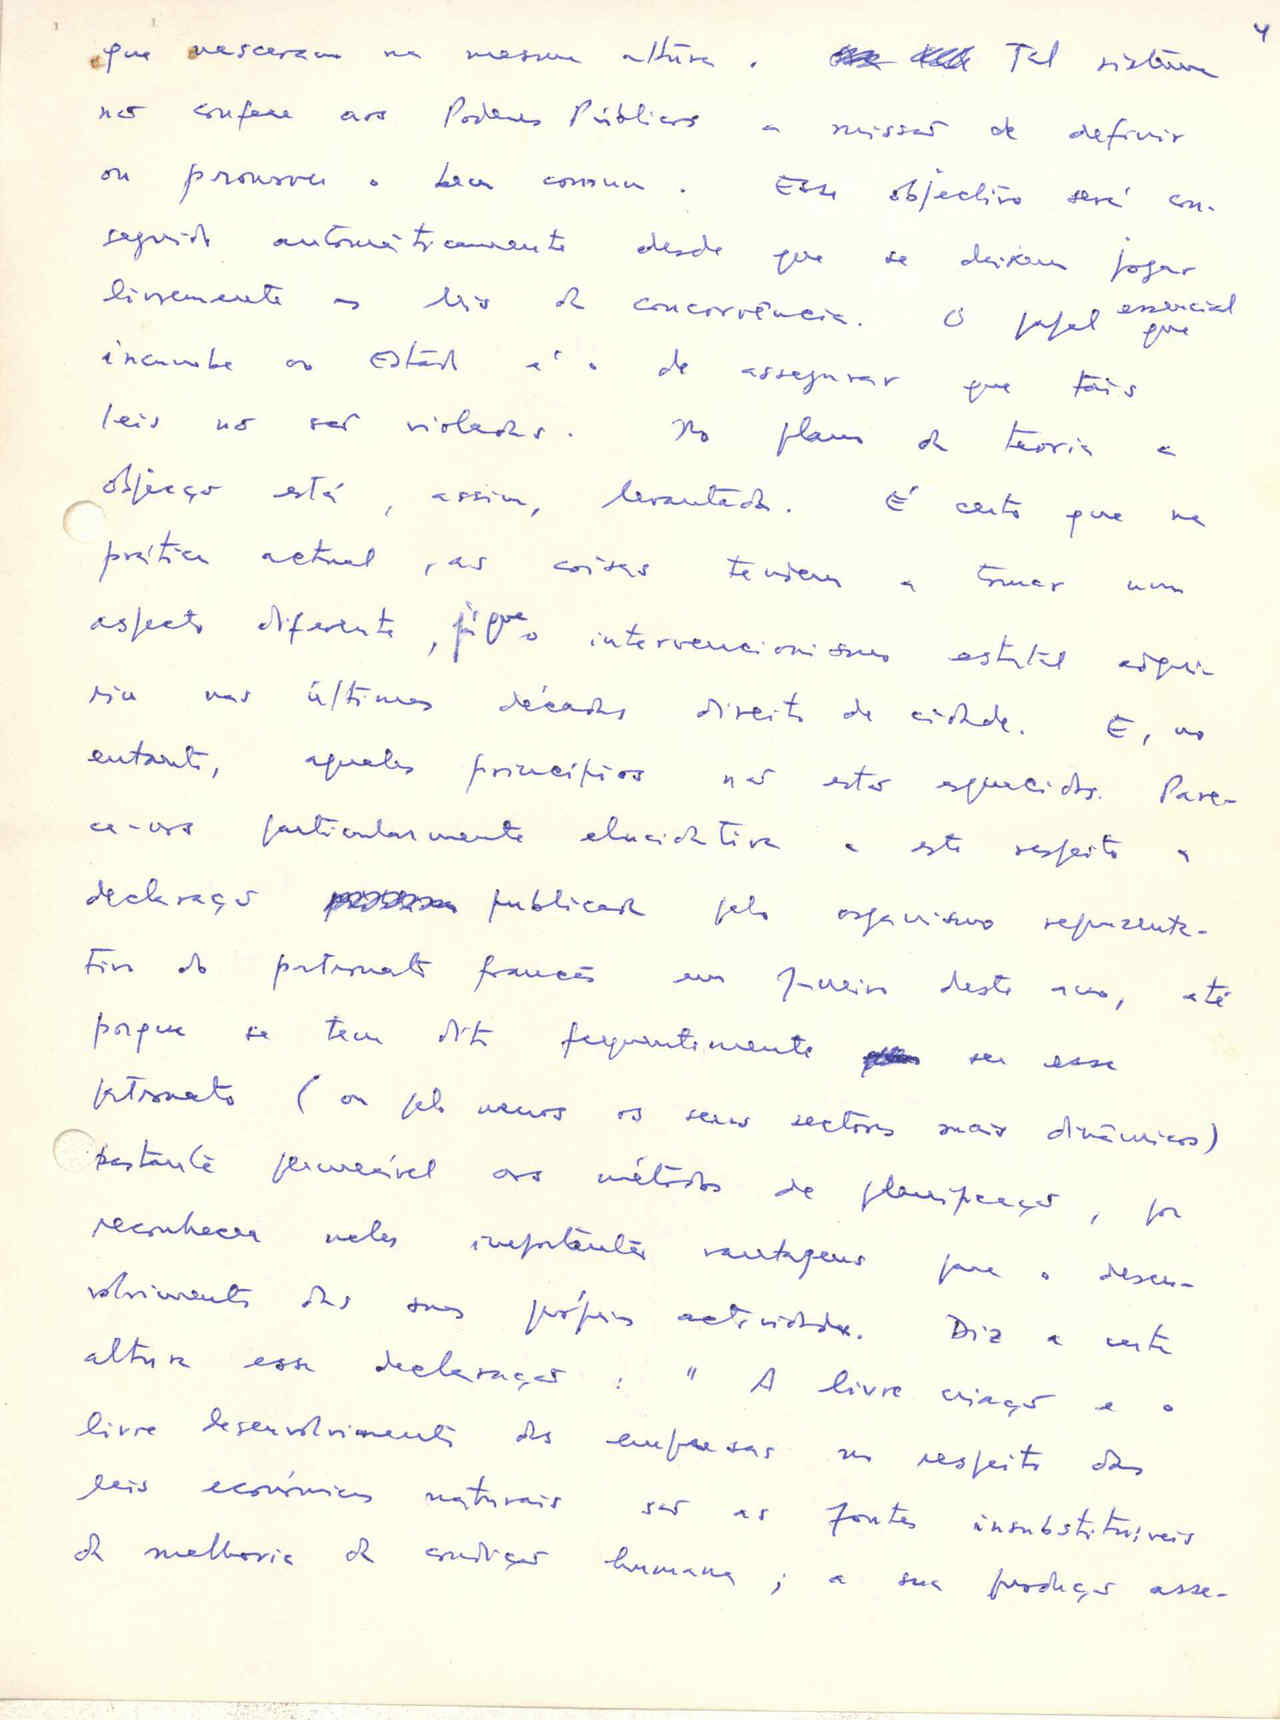 4
que nasceram na mesma altura. Tal sistema
não confere aos Poderes Públicos a missão de definir
ou promover o bem comum. Esse objectivo será con-
seguido automàticamente desde que se deixem jogar
livremente as leis da concorrência. O papel essencial que
incumbe ao Estado é o de assegurar que tais
leis não são violadas. No plano da teoria a
objecção está, assim, levantada. É certo que na
prática actual, as coisas tendem a tomar um
aspecto diferente, já que o intervencionismo estatal adqui-
riu nas últimas décadas direito de cidade. E, no
entanto, aqueles princípios não estão esquecidos. Pare-
ce-nos particularmente elucidativa a este respeito a
declaração publicada pelo organismo representa-
tivo do patronato francês em Janeiro deste ano, até
porque se tem dito frequentemente ser esse
patronato (ou pelo menos os seus sectores mais dinâmicos)
bastante permeável aos métodos de planificação, por
reconhecer neles importantes vantagens para o desen-
volvimento das suas próprias actividades. Diz a certa
altura essa declaração: " A livre criação e o
livre desenvolvimento das empresas no respeito das
leis económicas naturais são as fontes insubstituíveis
da melhoria da condição humana; a sua produção asse-